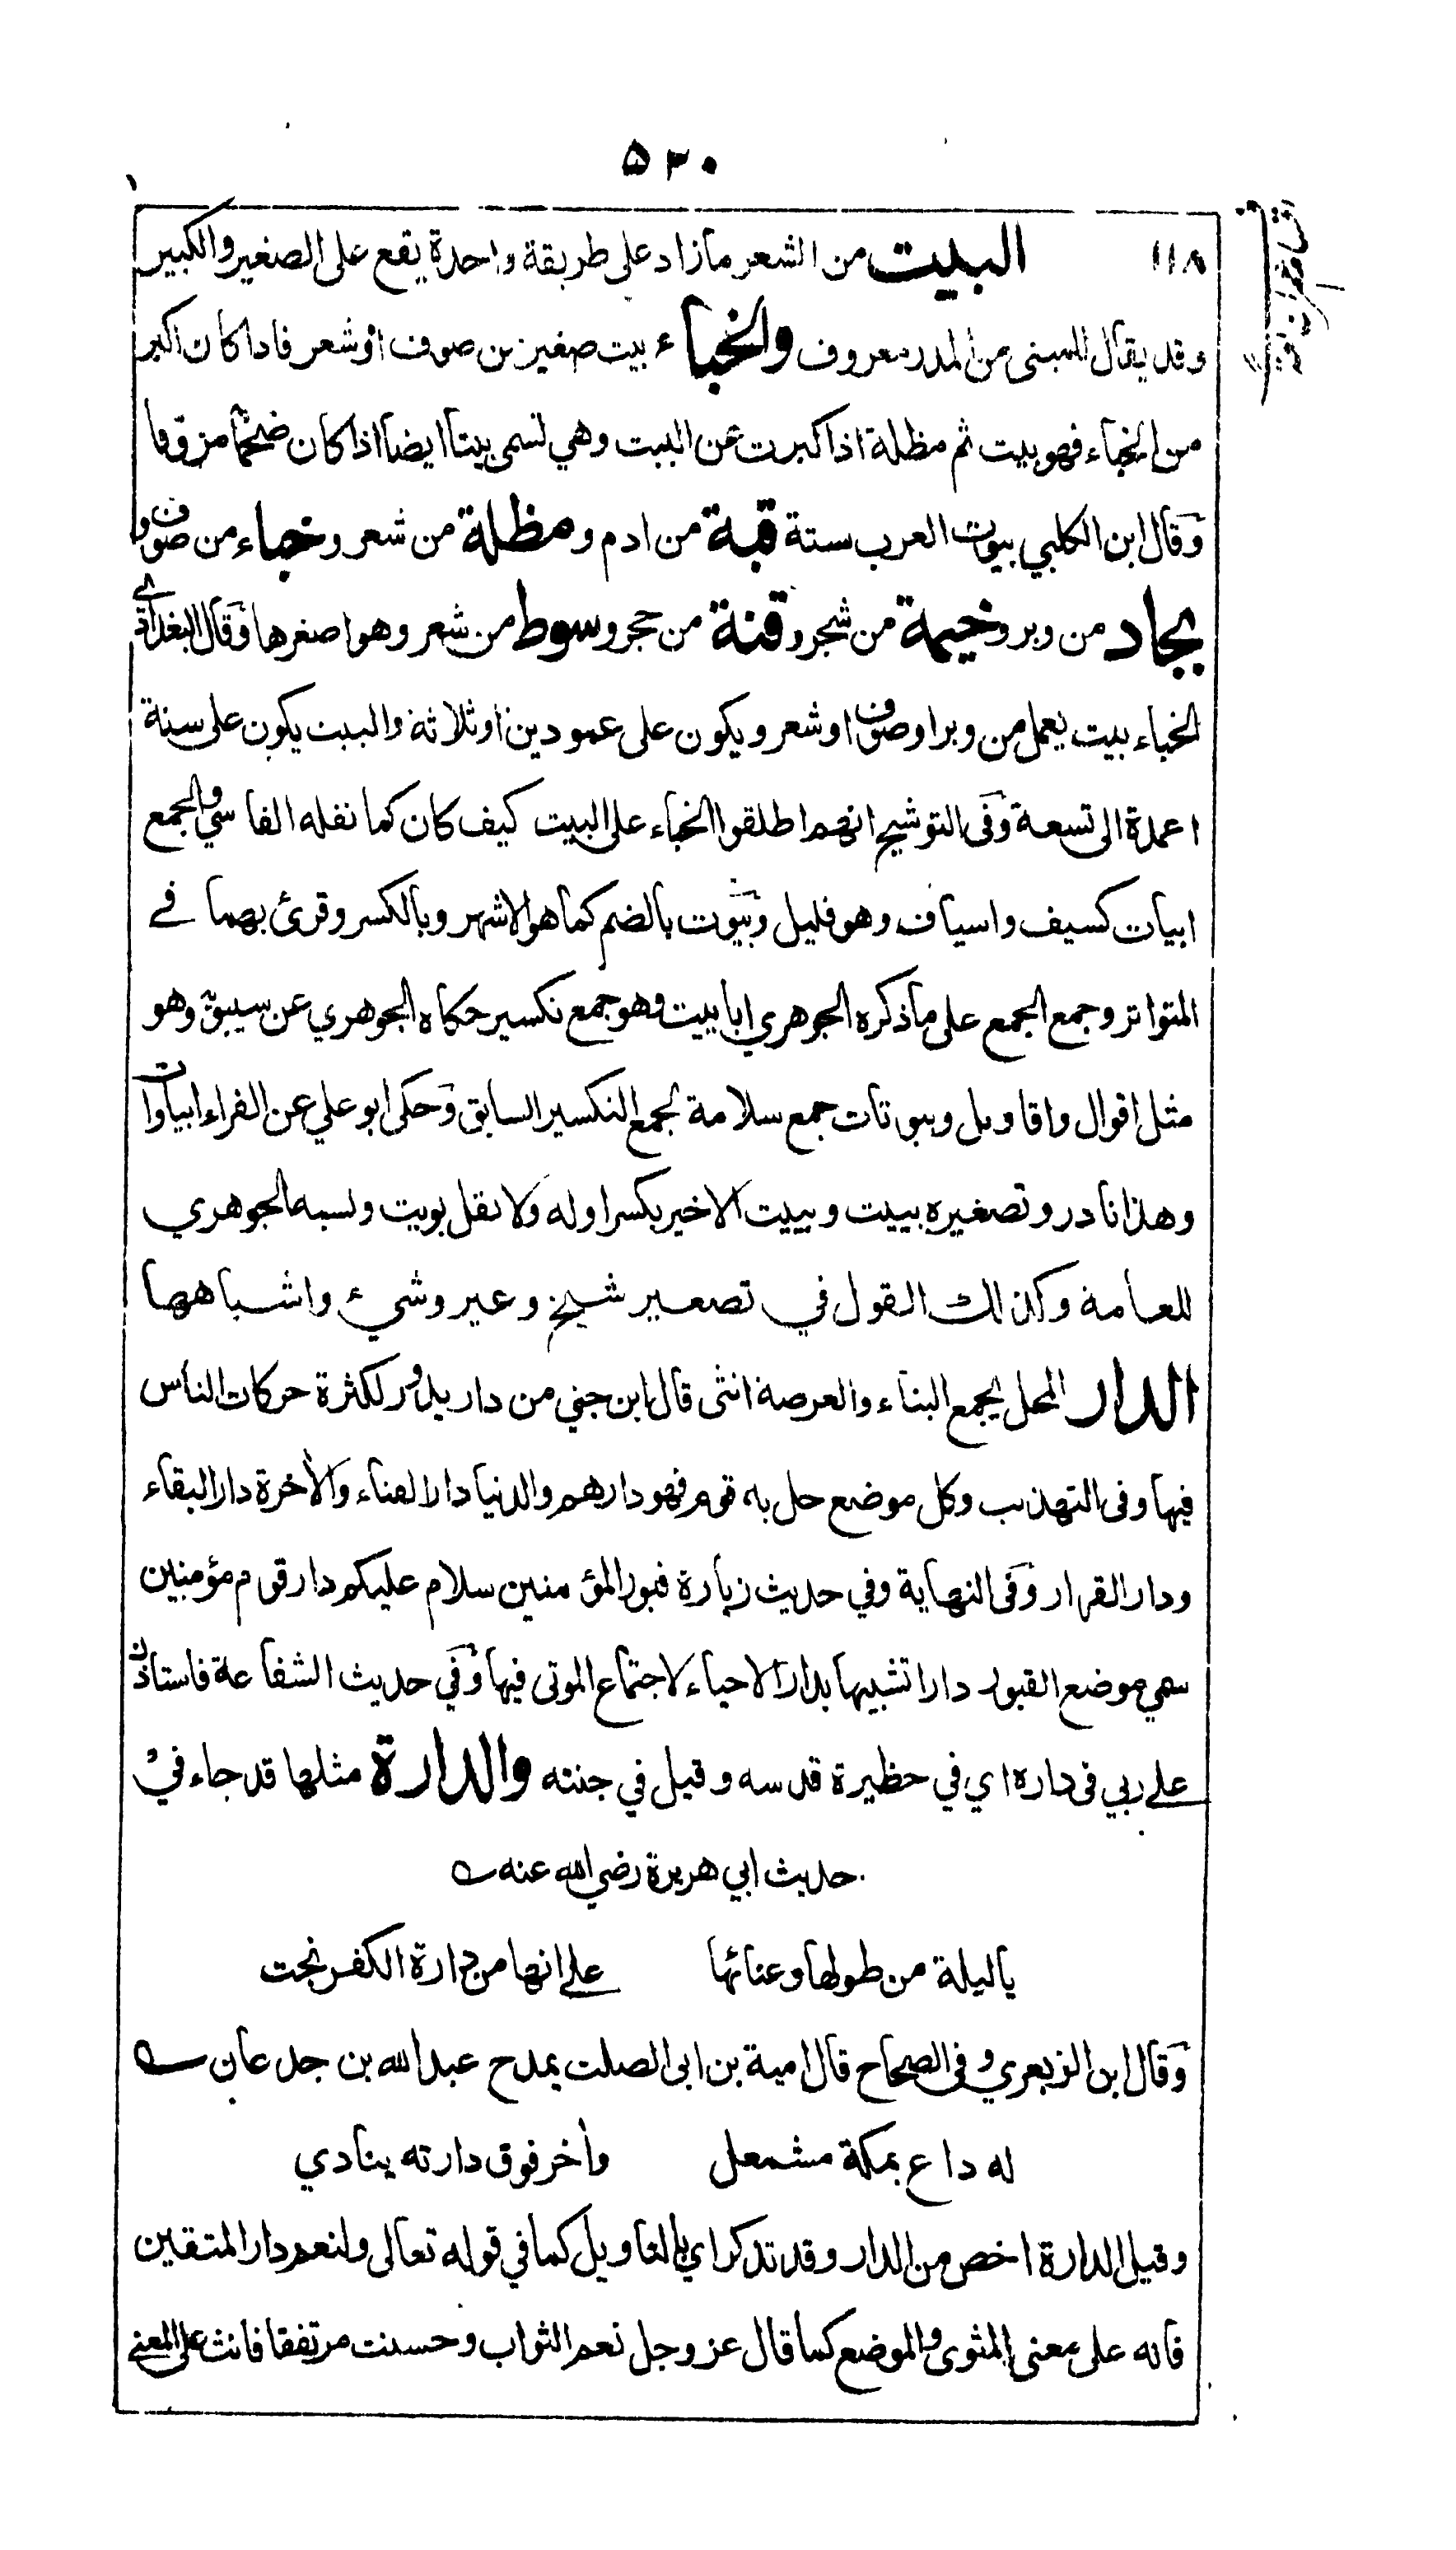 ۵۳۰
١١٨ البيت من الشعر ما زاد على طريقة واحدة يقع على الصغير والكبير
وقد يقال للمبنى من المدر معروف والخباء بيت صغير من صوف او شعر فاذا كان اكبر
من الخباء فهو بيت ثم مظلة اذا كبرت عن البيت وهي تسمى بيتا ايضا اذا كان ضخما مزوقا
وقال ابن الكلبي بيوت العرب ستة قبة من ادم ومظلة من شعر وخباء من صوف و
بجاد من وبر وخيمة من شجر وقنة من حجر وسوط من شعر وهو اصغرها وقال البغدادي
الخباء بيت يعمل من وبر او صوف او شعر ويكون على عمودين او ثلاثة والبيت يكون على ستة
اعمدة الى تسعة وفى التوشيح انهم اطلقوا الخباء على البيت كيف كان كما نقله الفاسي والجمع
ابيات كسيف واسياف وهو قليل وبيوت بالضم كما هو الاشهر وبالكسر وقرئ بهما في
المتواتر وجمع الجمع على ما ذكره الجوهري ابابيت وهو جمع تكسير حكاه الجوهري عن سيبويه وهو
مثل اقوال واقاويل وبيوتات جمع سلامة لجمع التكسير السابق وحكى ابو علي عن الفراء ابياوات
وهذا نادر وتصغيره بييت وبييت الاخير بكسر اوله ولا تقل بويت ونسبه الجوهري
للعامة وكذلك القول في تصغير شيخ وعير وشيء واشباهها
الدار المحل يجمع البناء والعرصة انثى قال ابن جني من دار يدور لكثرة حركات الناس
فيها وفى التهذيب وكل موضع حل به قوم فهو دارهم والدنيا دار الفناء والأخرة دار البقاء
ودار القرار وفى النهاية وفي حديث زيارة قبور المؤمنين سلام عليكم دار قوم مؤمنين
سمي موضع القبور دارا تشبيها بدار الاحياء لاجتماع الموتى فيها وفي حديث الشفاعة فاستاذن
على ربي فى داره اي في حظيرة قدسه وقيل في جنته والدارة مثلها قد جاء في
حديث ابي هريرة رضي الله عنه
يا ليلة من طولها وعنائها على انها من دارة الكفر نجت
وقال ابن الزبعري وفى الصحاح قال امية بن ابى الصلت يمدح عبد الله بن جدعان
له داع بمكة مشمعل وأخر فوق دارته ينادي
وقيل الدارة اخص من الدار وقد تذكر اي بالتاويل كما في قوله تعالى ولنعم دار المتقين
فانه على معنى المثوى والموضع كما قال عز وجل نعم الثواب وحسنت مرتفقا فانث على المعنى